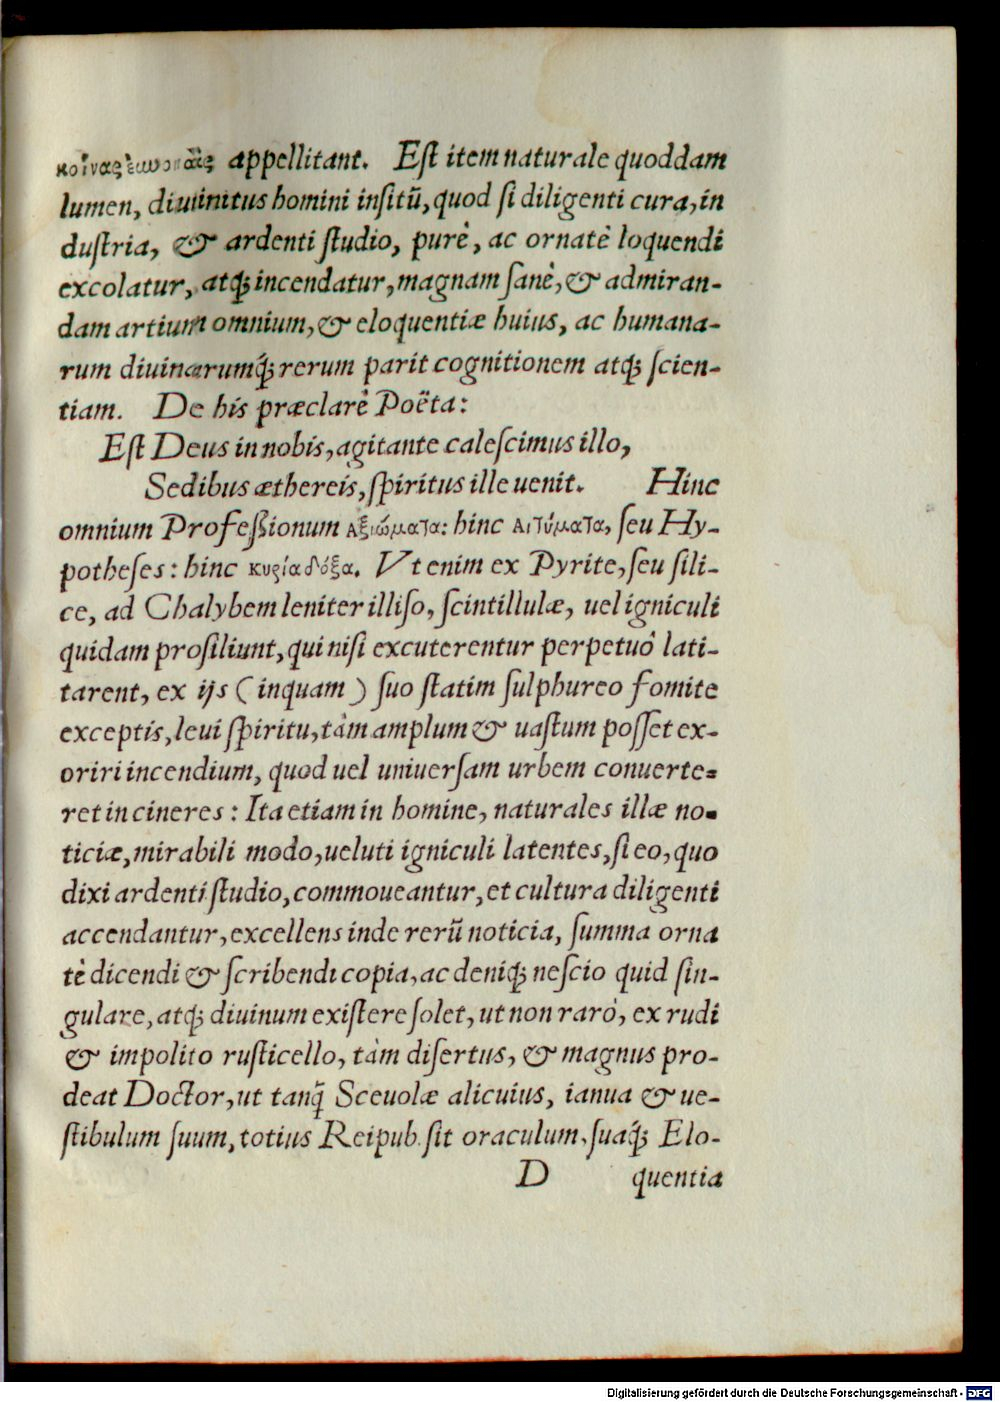 appellitant. Eſt item naturale quoddam
lumen, diuinitus homini inſitū, quod ſi diligenti cura, in
duſtria, & ardenti ſtudio, purè, ac ornatè loquendi
excolatur, atq; incendatur, magnam ſanè, & admiran-
dam artium omnium, & eloquentiæ huius, ac humana-
rum diuinarumq́; rerum parit cognitionem atq; ſcien-
tiam. De his præclarè Poëta:
Eſt Deus in nobis, agitante caleſcimus illo,
Sedibus æthereis, ſpiritus ille uenit. Hinc
omnium Profeſsionum Αξιώματα: hinc Αιτύματα, ſeu Hy-
potheſes: hinc κυρίαδόξα. Vt enim ex Pyrite, ſeu ſili-
ce, ad Chalybem leniter illiſo, ſcintillulæ, uel igniculi
quidam proſiliunt, qui niſi excuterentur perpetuò lati-
tarent, ex ijs (inquam) ſuo ſtatim ſulphureo fomite
exceptis, leui ſpiritu, tàm amplum & uaſtum poſſet ex-
oriri incendium, quod uel uniuerſam urbem conuerte=
ret in cineres: Ita etiam in homine, naturales illæ no-
ticiæ, mirabili modo, ueluti igniculi latentes, ſi eo, quo
dixi ardenti ſtudio, commoueantur, et cultura diligenti
accendantur, excellens inde rerū noticia, ſumma orna
tè dicendi & ſcribendi copia, ac deniq; neſcio quid ſin-
gulare, atq; diuinum exiſtere ſolet, ut non rarò, ex rudi
& impolito ruſticello, tàm diſertus, & magnus pro-
deat Doctor, ut tanq̃ Sceuolæ alicuius, ianua & ue-
ſtibulum ſuum, totius Reipub. ſit oraculum, ſuaq́; Elo-
D quentia
Digitalisierung gefördert durch die Deutsche Forschungsgemeinschaft - DFG